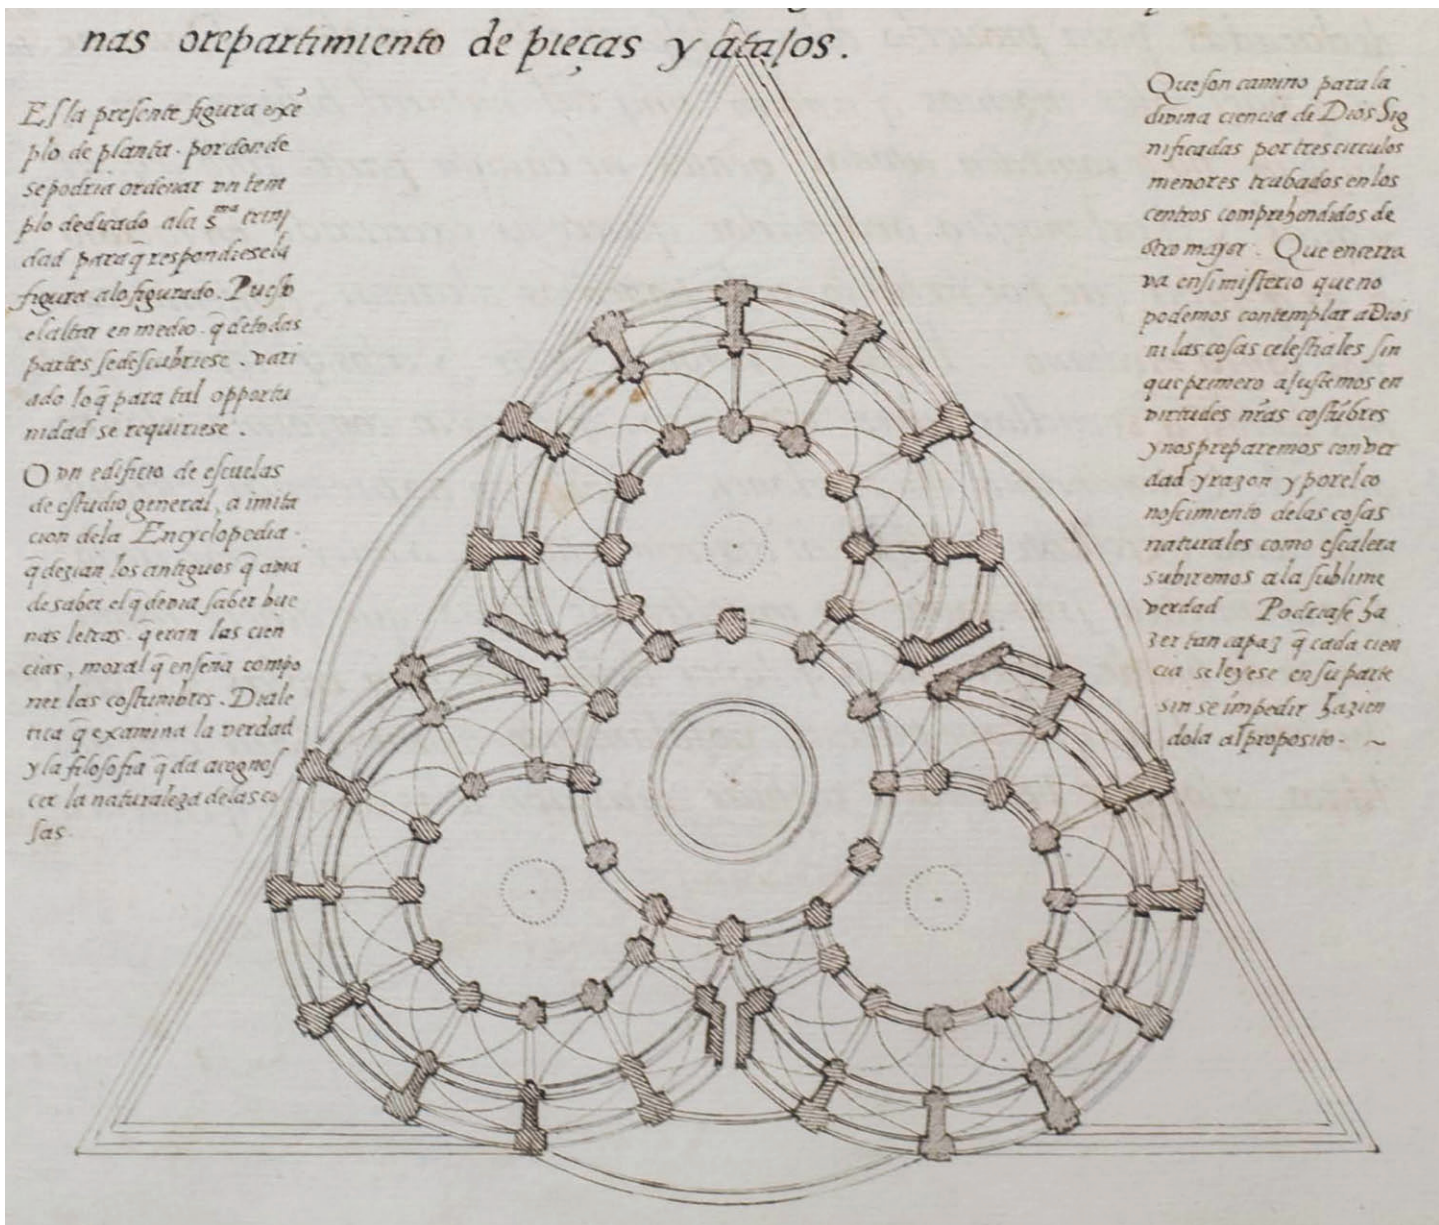 nas orepartimiento de pieças y atajos.
Es la presente figura exē
plo de planta. por donde
se podria ordenar vn tem
plo dedicado ala s̄ma trini
dad para q̄ respondiese la
figura alo figurado. Puesto
el altar en medio. q̄ de todas
partes se descubriese. vari
ado lo q̄ para tal opportu
nidad se requiriese.
O vn edificio de escuelas
de estudio general, a imita
cion dela Encyclopedia.
q̄ dezian los antiguos q̄ avia
de saber el q̄ devia saber bue
nas letras. q̄ eran las cien
cias, moral q̄ enseña compo
ner las costumbres. Diale
tica q̄ examina la verdad
y la filosofia q̄ da acognos
cer la naturaleza delas co
sas.
Que son camino para la
divina ciencia de Dios Sig
nificadas por tres circulos
menores trabados en los
centros comprehendidos de
otro mayor. Que encerra
va en si misterio que no
podemos contemplar a Dios
ni las cosas celestiales sin
que primero ajustemos en
virtudes nr̄as costūbres
y nos preparemos con ver
dad y razon y por el co
noscimiento delas cosas
naturales como escalera
subiremos ala sublime
verdad Podriase ha
zer tan capaz q̄ cada cien
cia se leyese en su parte
sin se impedir hazien
dola al proposito. ~